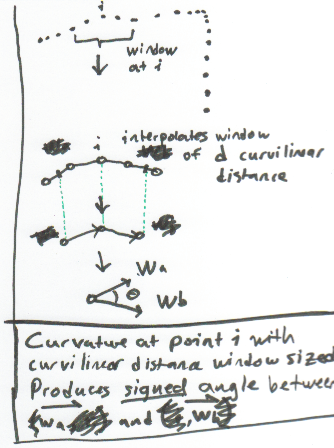 i
window
at i
i
interpolates window
of d curvilinear
distance
Wa
θ
Wb
Curvature at point i with
curvilinear distance window sized
Produces signed angle between
Wa and Wb